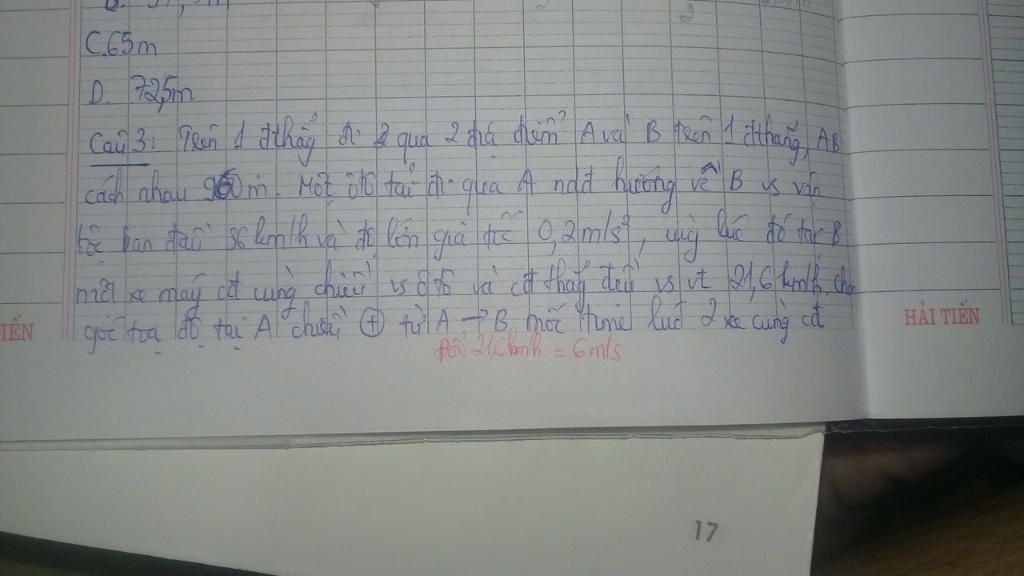 C. 65m
D. 72,5m
Câu 3: Trên 1 đthẳg đi qua 2 địa điểm A và B trên 1 đthẳng, AB
cách nhau 960m. Một ôtô tại đi qua A hướng về B vs vận
tốc ban đầu 36km/h và độ lớn gia tốc 0,2m/s², cùg lúc đó tại B
một xe máy cđ cùng chiều vs ôtô và cđ thẳg đều vs vt 21,6km/h. Chọn
gốc tọa độ tại A chiều ⊕ từ A → B mốc time lúc 2 xe cùng cđ
Đổi: 21,6km/h = 6m/s
HẢI TIẾN
IẾN
17